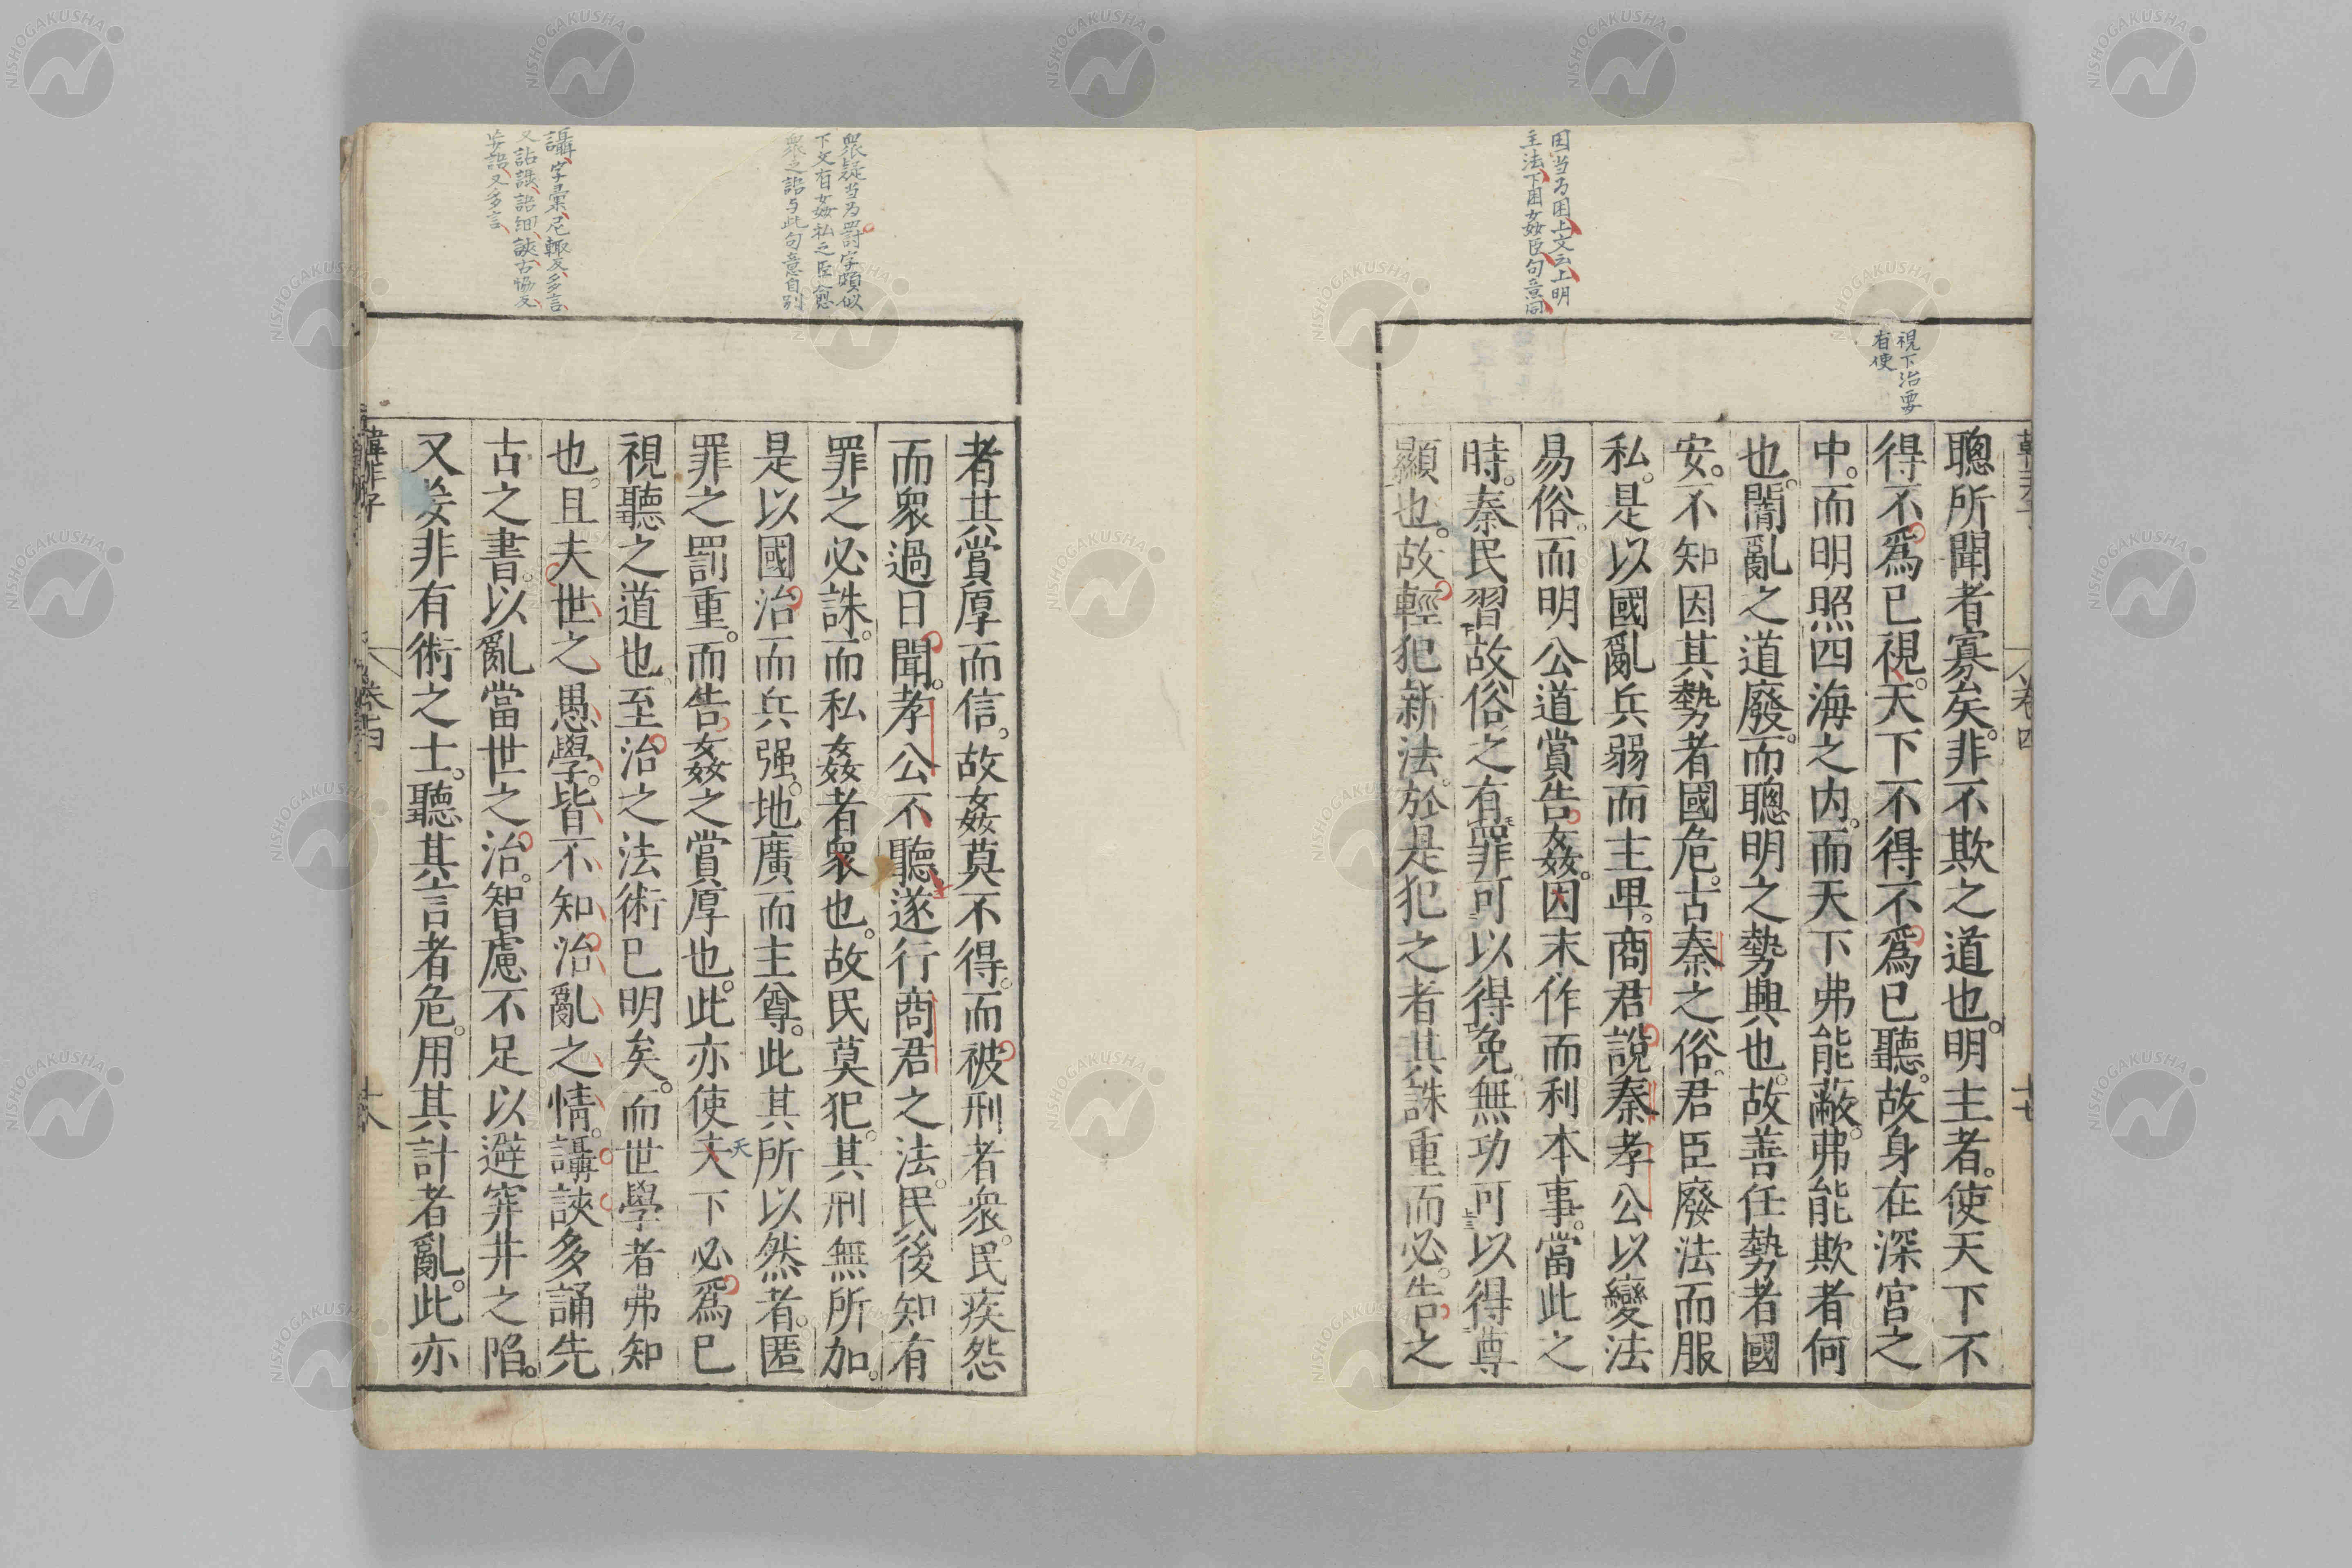 視下治要
有使
因当为困上文云上明
主法下困姦臣句意同
聰所聞者寡矣。非不欺之道也。明主者。使天下不
得不爲已視。天下不得不爲已聽。故身在深宫之
中。而明照四海之内。而天下弗能蔽。弗能欺者何
也。闇亂之道廢。而聰明之勢興也。故善任勢者國
安。不知因其勢者國危。古秦之俗。君臣廢法而服
私。是以國亂兵弱而主卑。商君説秦孝公以變法
易俗。而明公道賞告姦。因末作而利本事。當此之
時。秦民習故俗之有罪可以得免。無功可以得尊
顯也。故輕犯新法。於是犯之者其誅重而必。告之
卷四
十七
衆疑当为罰字頗似
下文有姦私之臣愈
衆之語与此句意自别
讘字彙尼輒反多言
又詀讘語細誺古恊反
妄語又多言
者其賞厚而信。故姦莫不得。而被刑者衆。民疾怨
而衆過日聞。孝公不聽。遂行商君之法。民後知有
罪之必誅。而私姦者衆也。故民莫犯。其刑無所加。
是以國治而兵强。地廣而主尊。此其所以然者。匿
罪之罰重。而告姦之賞厚也。此亦使夫下必爲已
天
視聽之道也。至治之法術已明矣。而世學者弗知
也。且夫世之愚學。皆不知治亂之情。讘䛟多誦先
古之書。以亂當世之治。智慮不足以避穽井之陷。
又妄非有術之士。聽其言者危。用其計者亂。此亦
韓非子
卷四
十八
NISHOGAKUSHA